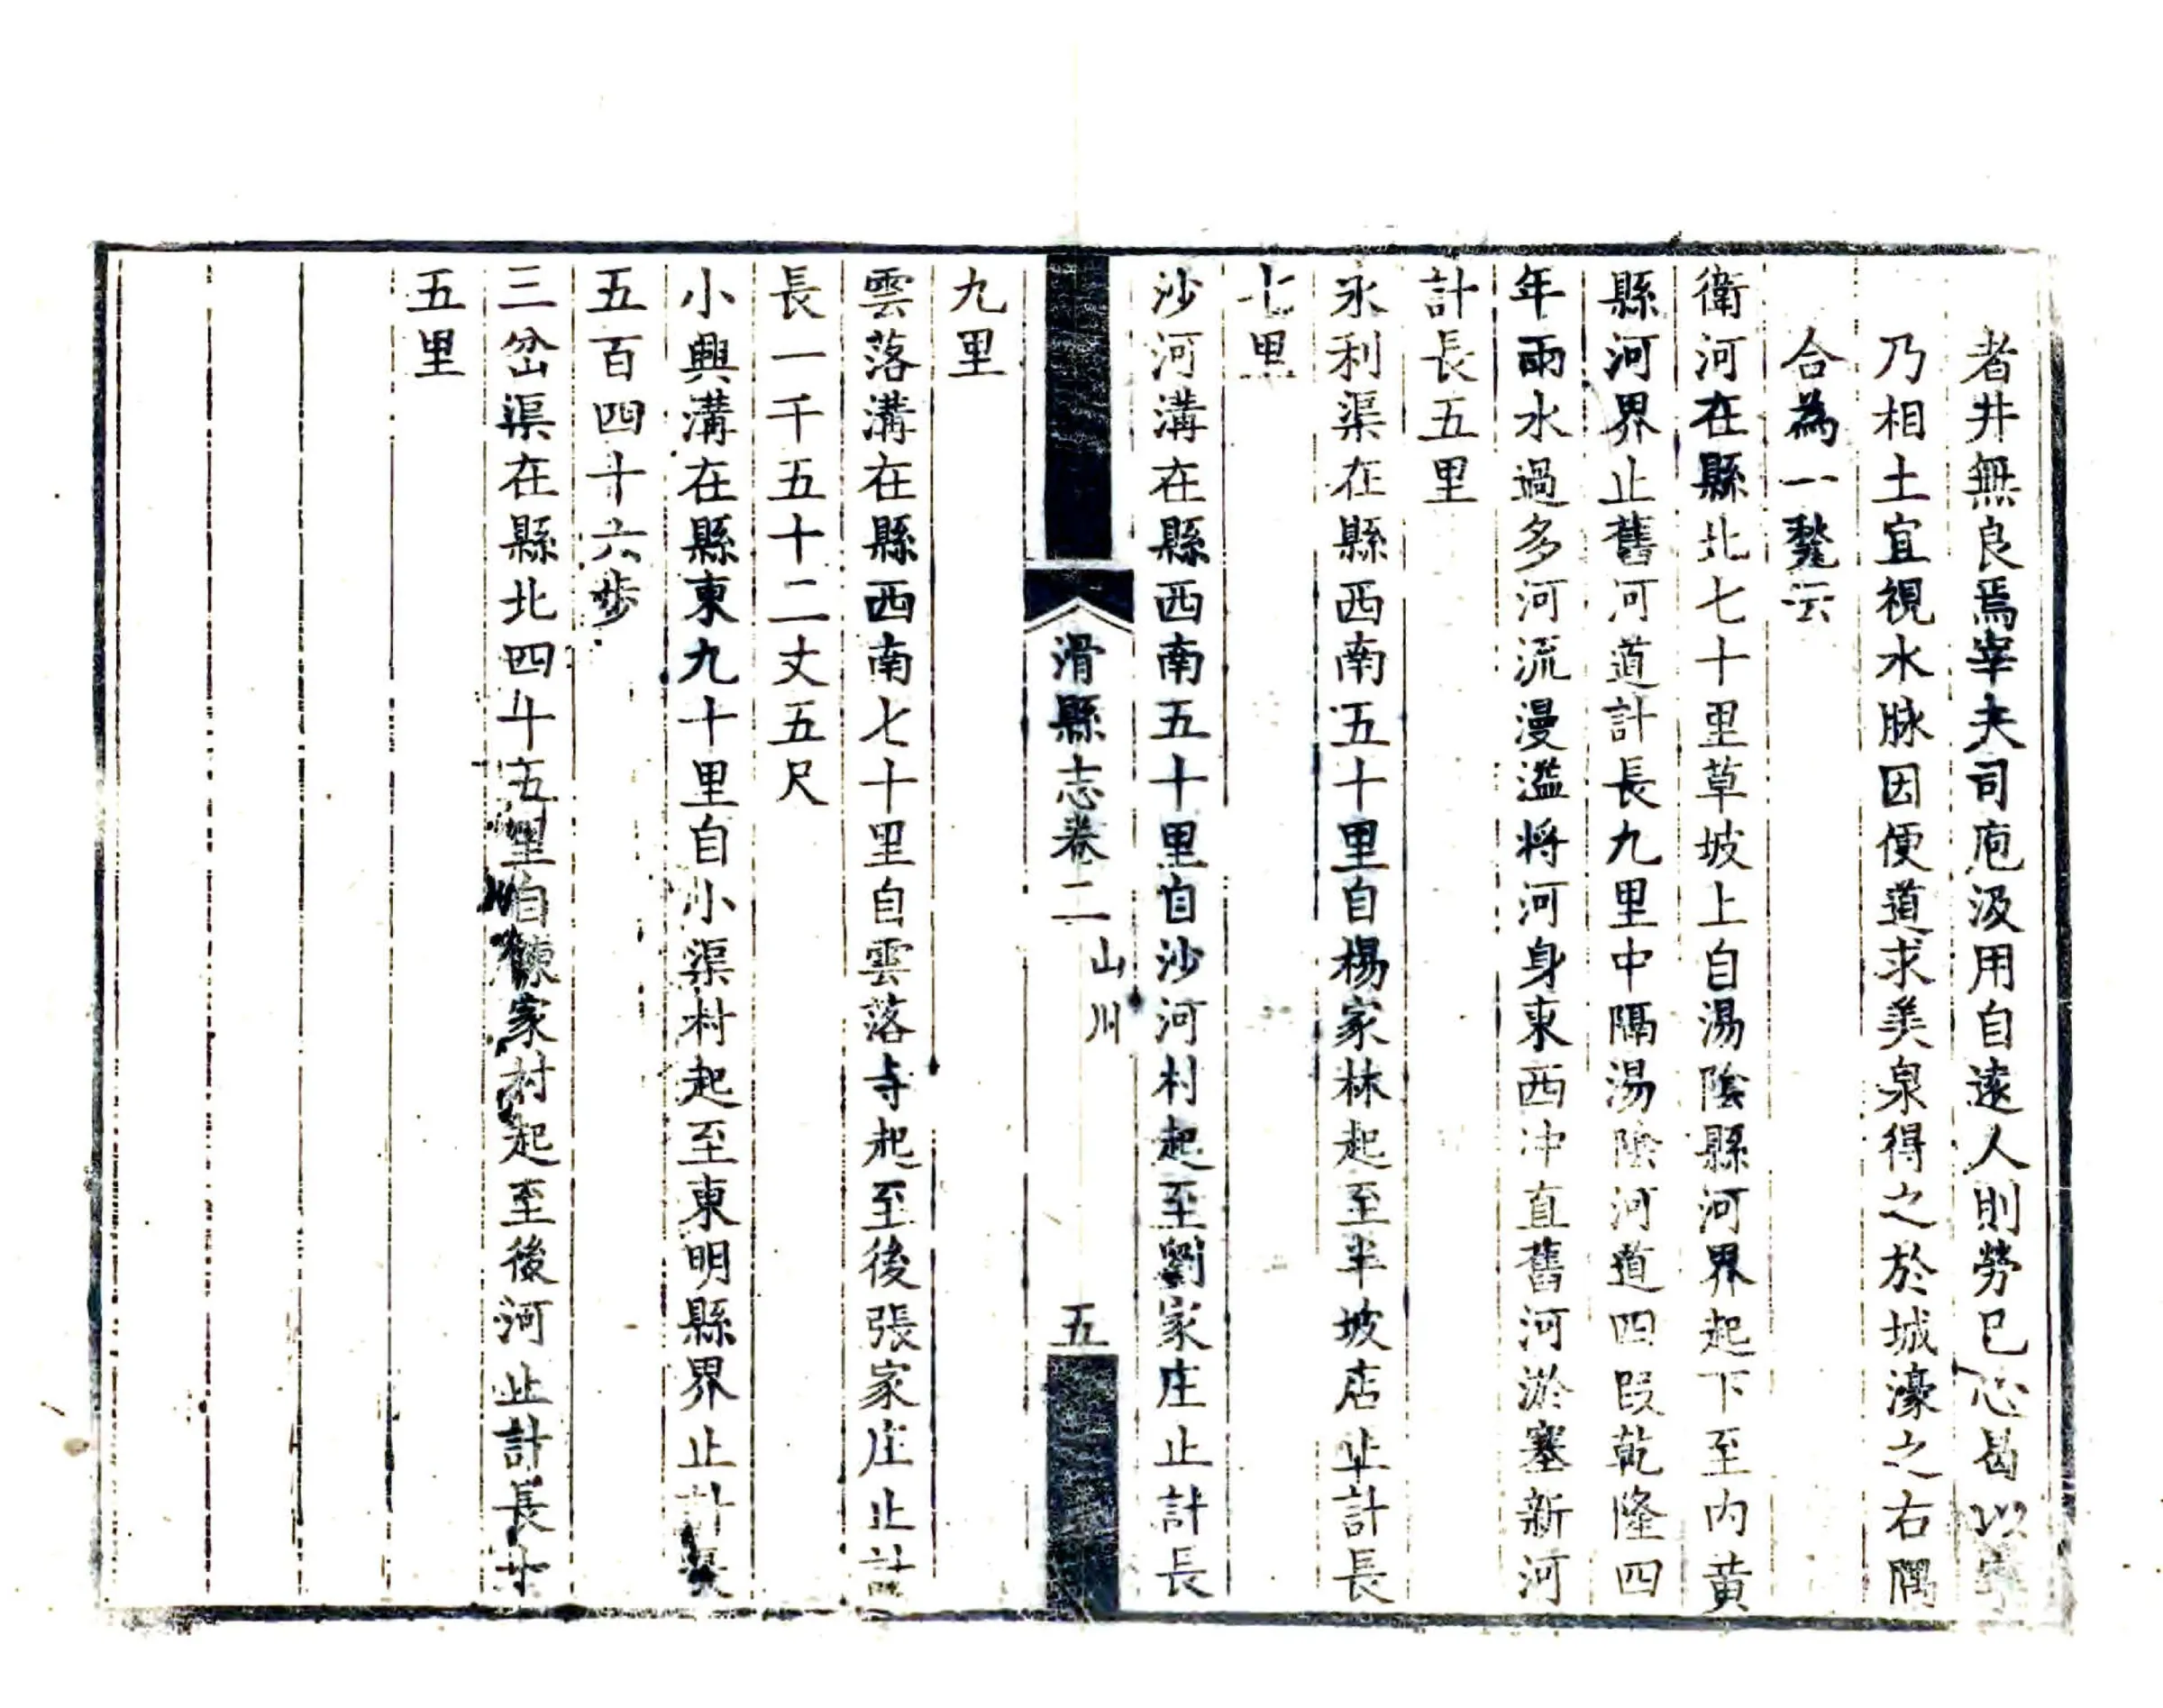 者井無良焉宰夫司庖汲用自遠人則勞已心曷以
乃相土宜視水脉因便道求美泉得之於城濠之右隅
合為一甃云
衛河在縣北七十里草坡上自湯陰縣河界起下至内黃
縣河界止舊河道計長九里中隔湯陰河道四段乾隆四
年雨水過多河流漫溢将河身東西冲直舊河淤塞新河
計長五里
永利渠在縣西南五十里自楊家林起至半坡店止計長
七里
沙河溝在縣西南五十里自沙河村起至劉家庄止計長
滑縣志卷二 山川 五
九里
雲落溝在縣西南七十里自雲落寺起至後張家庄止計
長一千五十二丈五尺
小興溝在縣東九十里自小渠村起至東明縣界止計長
五百四十六步
三岔渠在縣北四十五里自陳家村起至後河止計長十
五里